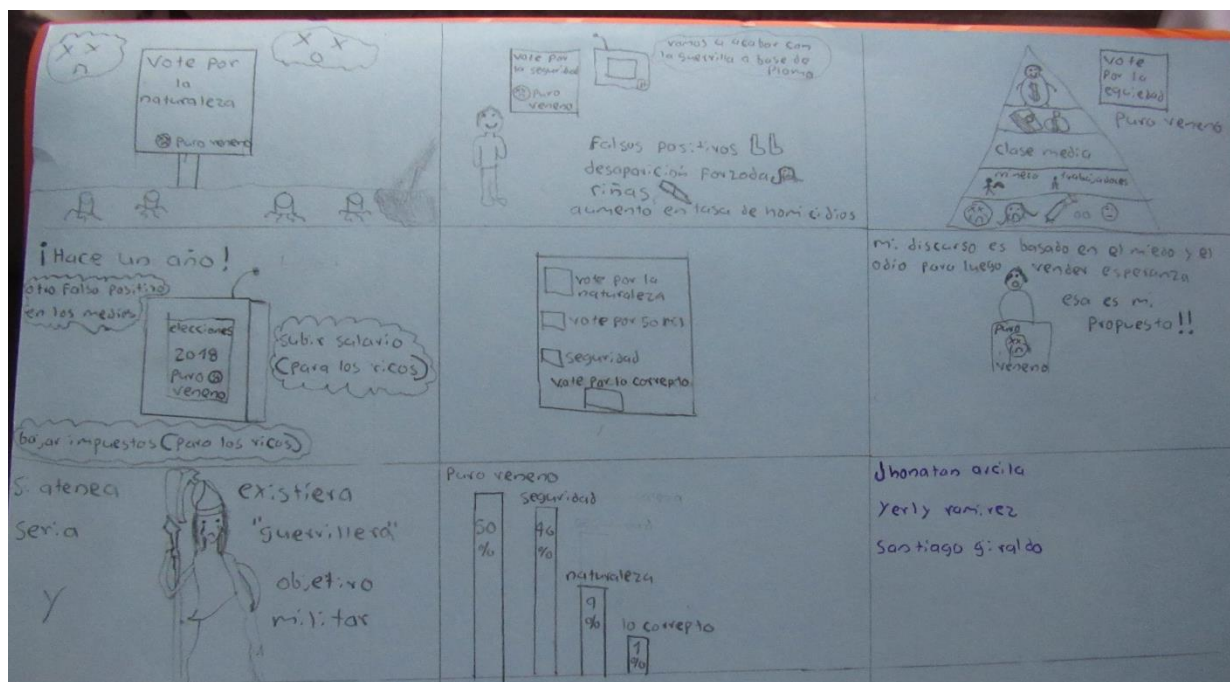 Vote por
la
naturaleza
Puro veneno
vote por
la seguridad
Puro
veneno
vamos a acabar con
la guerrilla a base de
Plomo
Falsos positivos
desaparición Forzoda
riñas
aumento en tasa de homicidios
vote
por la
equiedad
puro veneno
clase media
minero trabajadores
¡Hace un año!
otro Falso Positivo
en los medios
elecciones
2018
Puro
veneno
subir salario
(para los ricos)
bajar impuestos (para los ricos)
vote por la
naturaleza
vote por 50 mil
seguridad
vote por lo correpto
mi discurso es basado en el miedo y el
odio para luego vender esperanza
esa es mi
Propuesta!!
puro
veneno
Si atenea existiera
seria "guerrillera"
Y objetivo
militar
Puro veneno
50
%
seguridad
46
%
naturaleza
9
%
lo correpto
1
%
Jhonatan arcila
Yerly ramirez
Santiago giraldo